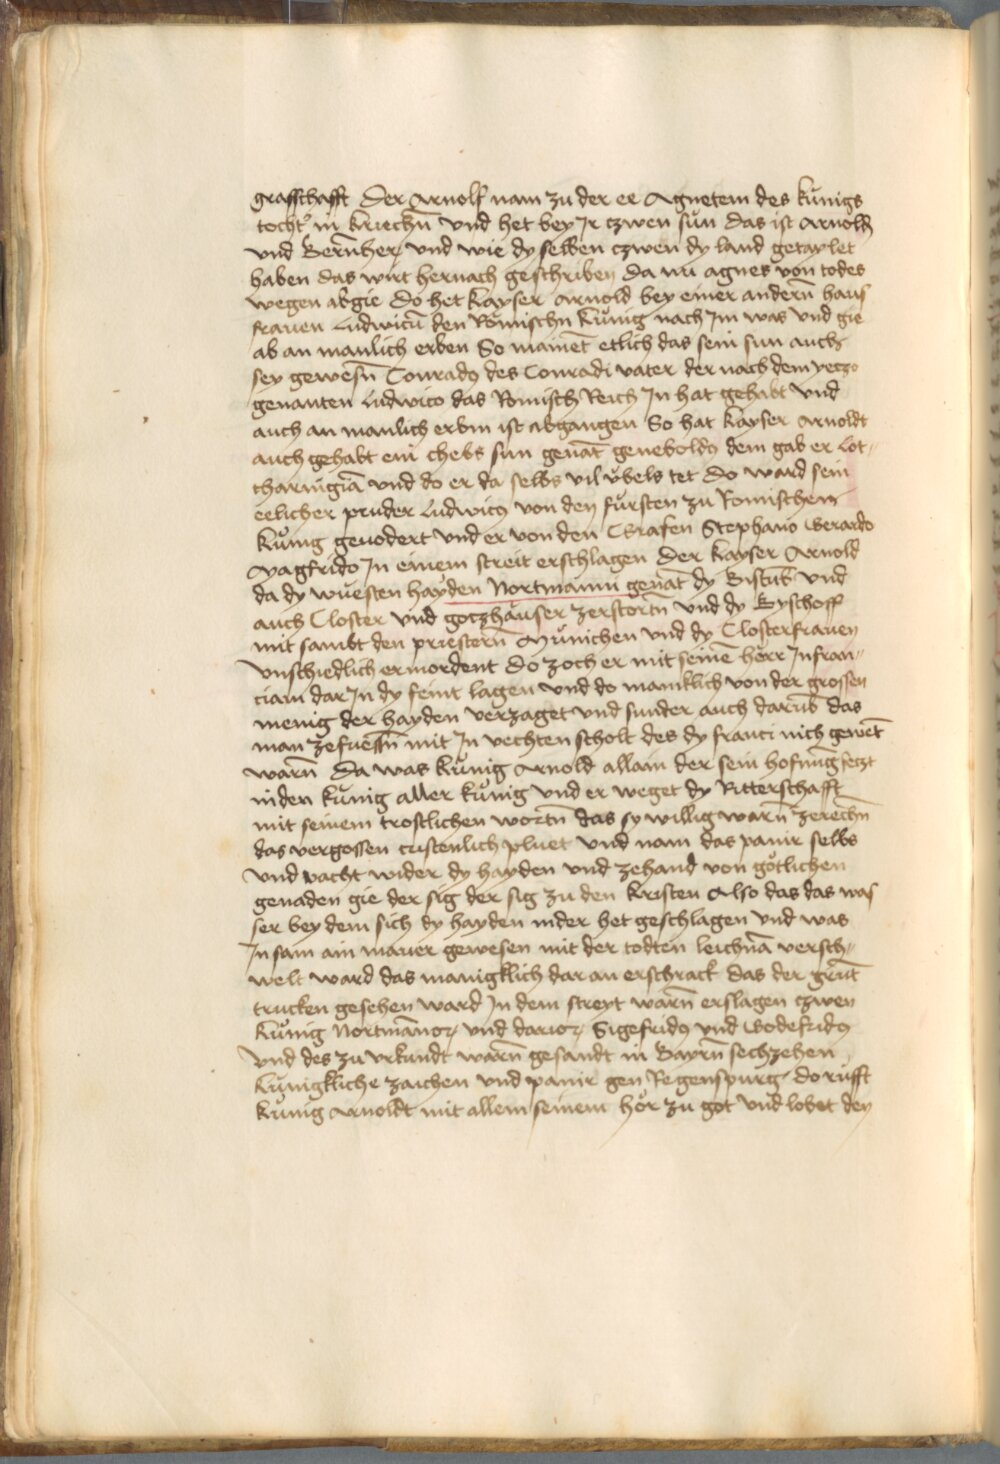 graffschafft Der Arnolf nam zu der ee Agnetem des kůnigs
tocht' in kriechn̄ Vnd het bey Jr czwen sun das ist Arnold
vnd Bern̄her vnd wie dy selben czwen dy land getaylet
haben das wirt hernach geschriben Da nu agnes von todes
wegen abgie Do het kayser Arnold bey einer andern̄ haus
frauen Ludwicū den Römischn̄ kůnig nach Jm was vnd gie
ab an manlich erben So mainet etlich das sein sun auch
sey gewesn̄ Conradꝯ des Conradi vater der nach dem yeczo
genanten Ludwico das Romisch Reich Jn hat gehabt vnd
auch an manlich erbm ist abgangen So hat kayser Arnoldt
auch gehabt ein chebs sun genāt geneboldꝯ dem gab er Lot-
tharingiā vnd do er da selbs vil vbels tet Do ward sein
eelicher pruder Ludwicꝯ von den fursten zu Romischem
kůnig geuodert vnd er von den Grafen Stephano Gerardo
Magfrido Jn einem streit erschlagen Der kayser Arnold
da dy wuesten hayden Nortmann genāt dy Bistūb vnd
auch Closter vnd goczhäuser zerstortn̄ vnd dy Byschoff
mit sambt den priestern̄ Műnichen vnd dy Closterfrauen
Vnschiedlich ermordent Do zoch er mit seinē herr Jn fran-
ciam dar Jn dy feint lagen vnd do manklich von der grossen
menig der hayden verzaget vnd sunder auch darūb das
man zefuessn̄ mit Jn vechten scholt des dy franci nich gewēt
warn̄ Da was kůnig Arnold allain der sein hofnūg seczt
in den kůnig aller kůnig vnd er weget dy Ritterschafft
mit seinem trostlichen wortn̄ das sy willig warn̄ zerechn̄
das vergossen cristenlich pluet vnd nam das panir selbs
vnd vacht wider dy hayden vnd zehand von götlichen
genaden gie der sig der sig zu den kristen Also das das was
ser bey dem sich dy hayden nider het geschlagen vnd was
Jn sam ain mauer gewesen mit der todten leichnā versch-
welt ward das manigklich dar an erschrack das der grūt
trucken gesehen ward Jn dem streyt warn̄ erslagen czwen
kůnig Nortmānoꝝ vnd darioꝝ Sigefridꝯ vnd Godefridꝯ
vnd des zu vrkundt warn̄ gesandt in Bayrn̄ sechzehen
kůnigkliche zaichen vnd panir gen Regenspurg do rufft
kůnig Arnoldt mit allem seinem hör zu got vnd lobet den